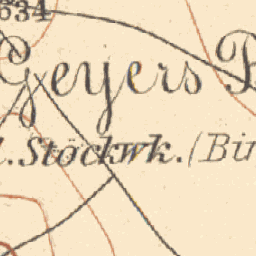 634
Geyers
Stöckwk. (Bir